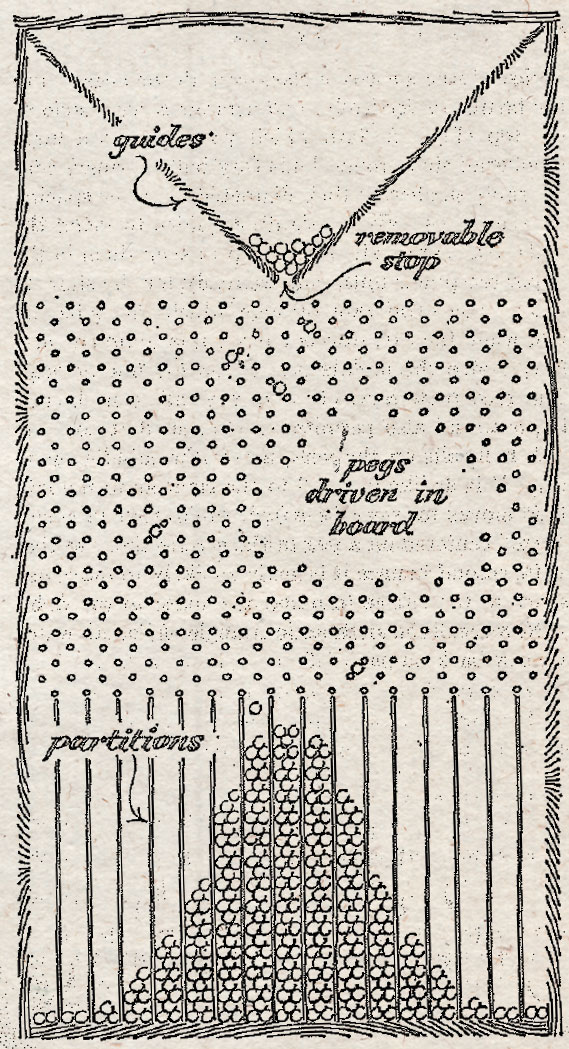 guides
removable
stop
pegs
driven in
board
partitions